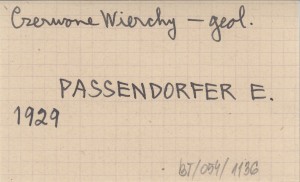 Czerwone Wierchy – geol.
PASSENDORFER E.
1929
BT/054/1136